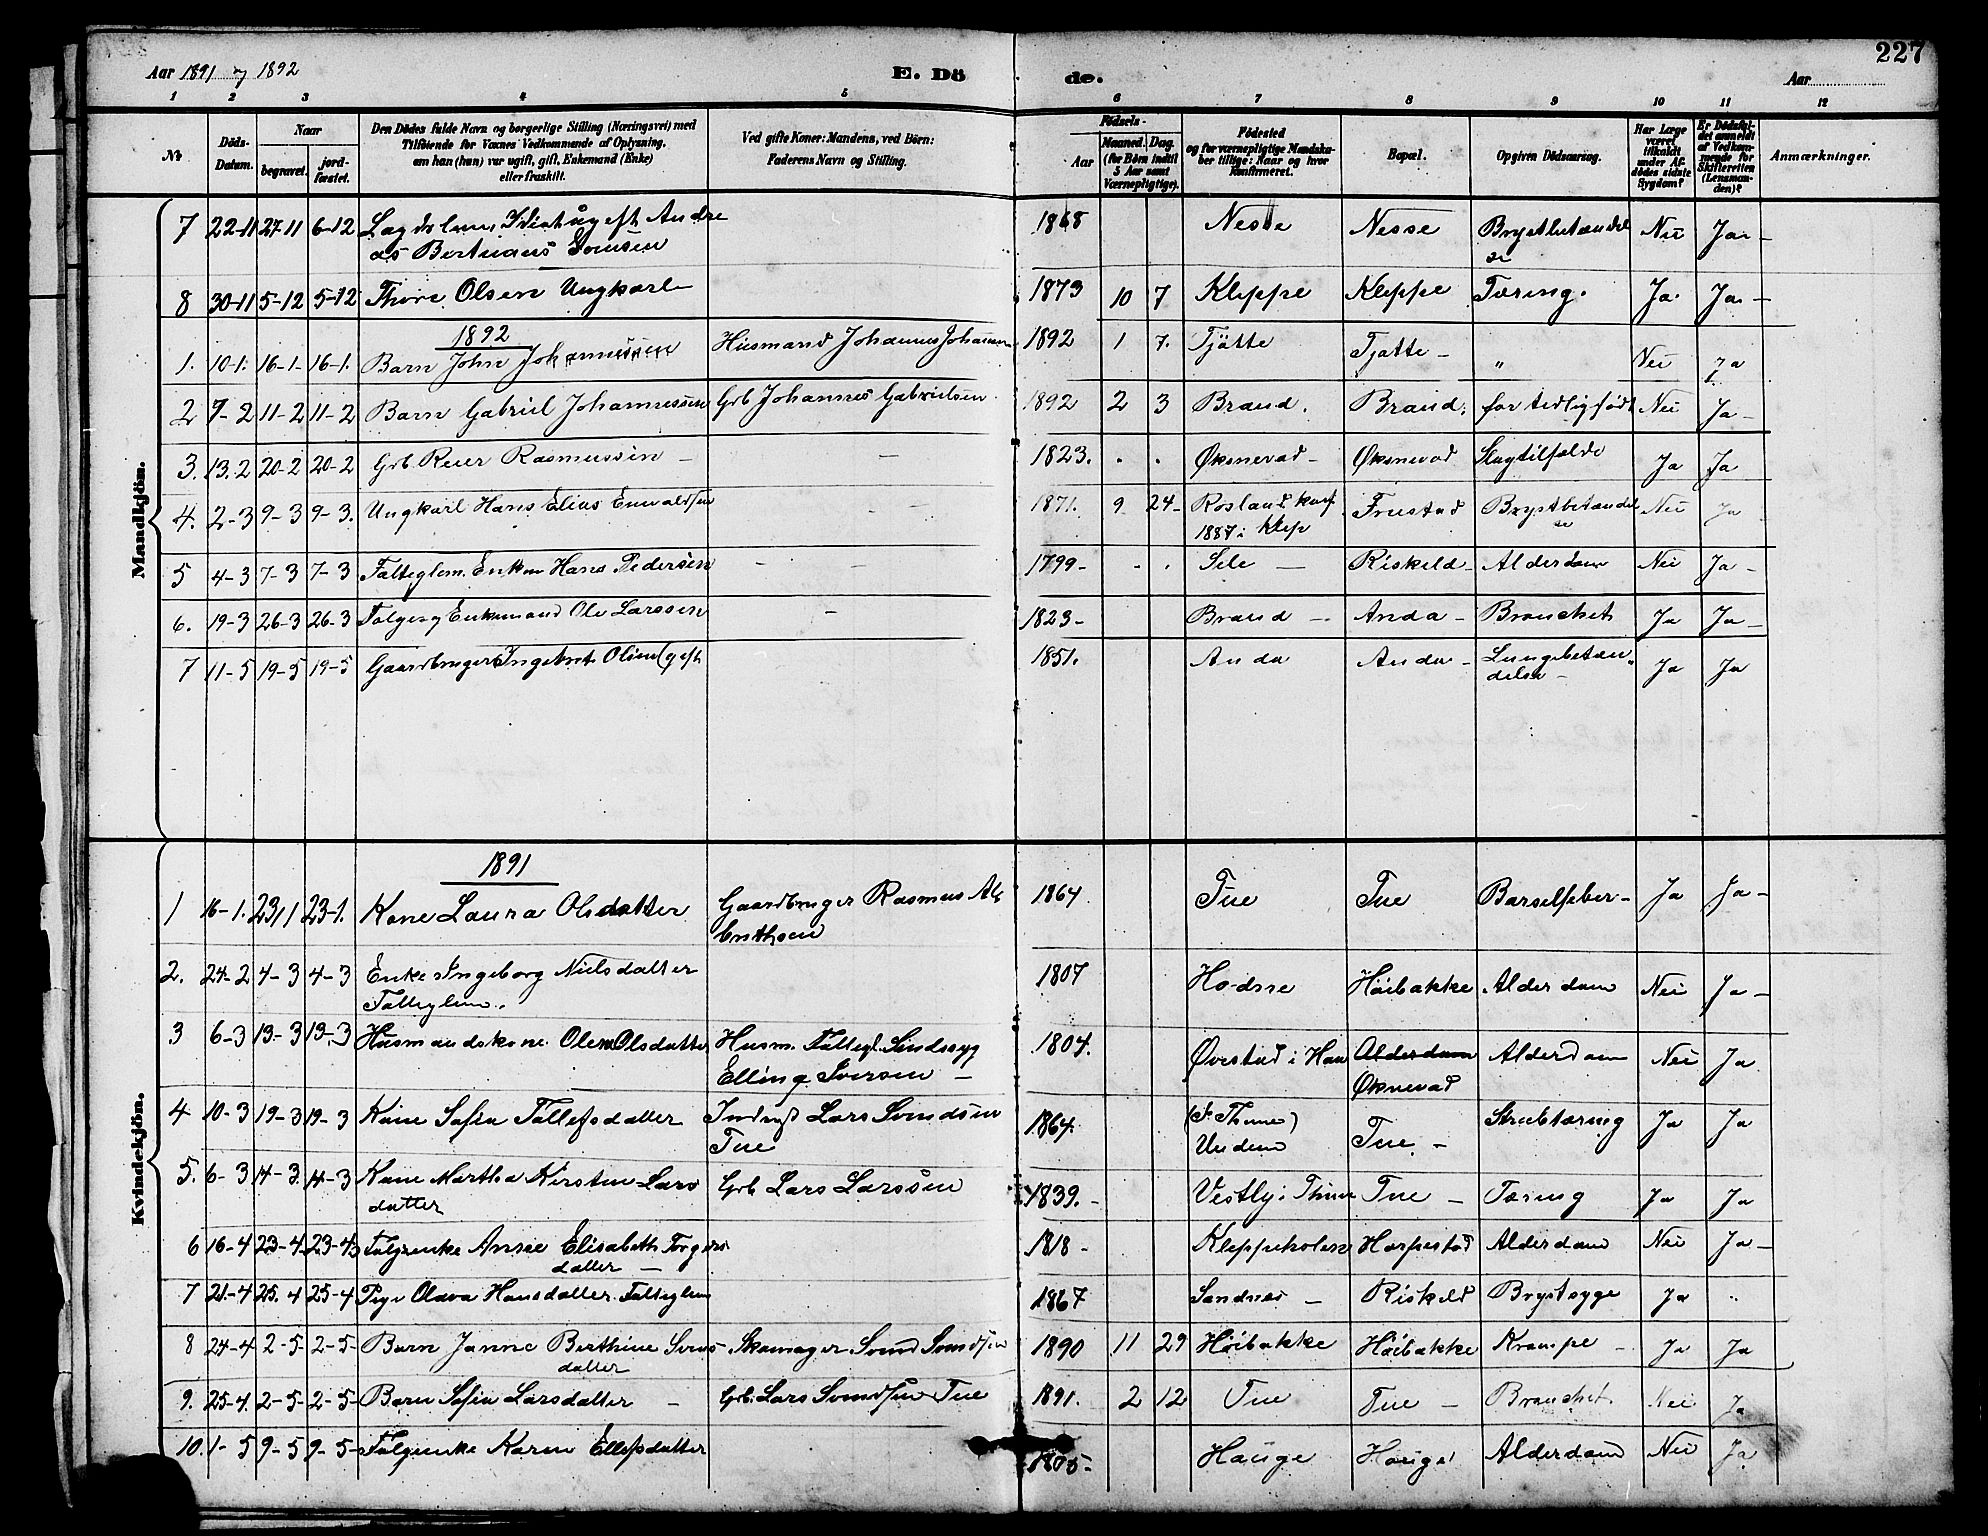 227
Aar 1891 og 1892
E. Dö
de.
Aar
1 2 3 4 5 6 7 8 9 10 11 12
№
Döds-Datum.
Naar
begravet.
jordfæstet.
Den Dödes fulde Navn og borgerlige Stilling (Næringsvei) med
Tilföiende for Voxnes Vedkommende af Oplysning,
om han (hun) var ugift, gift, Enkemand (Enke)
eller fraskilt.
Ved gifte Koner: Mandens, ved Börn:
Faderens Navn og Stilling.
Födsels-
Aar
Maaned. Dag.
(for Börn indtil
5 Aar samt
Værnepligtige).
Födested
og for værnepligtige Mandskaber tillige: Naar og hvor
konfirmeret.
Bopæl.
Opgiven Dödsaarsag.
Har Læge
været
tilkaldt
under Afdödes sidste
Sygdom?
Er Dödsfaldet anmeldt
af Vedkommende for
Skifteretten
(Lensmanden)?
Anmærkninger.
Mandkjön.
7 22-11 27-11 6-12 Lægdslem, ugift Andre 1868 Nesse Nesse Brystbetændel Nei Ja -
as Bertinaus se
8 30-11 5-12 5-12 Thore Olsen Ungkarl 1873 10 7 Kleppe Kleppe Tæring. Ja Ja -
1892
1. 10-1. 16-1- 16-1. Barn John Johannessen Husmand Johannes Johannsen 1892 1 7. Tjøtte Tjøtte - " Nei Ja
2 7-2 11-2 11-2 Barn Gabriel Johannessen Grb Johannes Gabrielsen. 1892 2 3 Braud. Braud. for tidlig født Nei Ja -
3. 13-2 20-2 20-2 Grb. Reier Rasmussen - - 1823. . . Øksnevad - Øksnevad Slagtilfælde Ja Ja
4. 2-3 9-3 9-3. Ungkarl Hans Elias Enevaldsen - - 1871. 9 24- Rosland konf Frøstad Brystbetændel Nei Ja
1887 i Klep se
5 4-3 7-3 7-3 Fattiglem. Enkem Hans Pedersen - - 1799- - . Sele - Riskeld - Alderdom Nei Ja -
6. 19-3 26-3 26-3 Folgesg Enkemand Ole Larssen - 1823- Braud - Anda - Bronchit Ja Ja -
7 11-5 19-5 19-5 Gaardbruger Ingebret Olsen (gift 1851. Anda Anda - Lungebetæn- Ja Ja
delse -
Kvindekjön.
1891
1 16-1. 23/1 23-1. Kone Laura Olsdatter Gaardbruger Rasmus Al 1864 Tue Tue Barselfeber - Ja Ja -
berthsen
2. 24-2 4-3 4-3 Enke Ingeborg Nielsdatter 1807 Hodne Høibakke Alderdom Nei Ja -
Fattiglem.
3 6-3 13-3 13-3 Husmandskone Olene Olsdatter Husm. Fattigl. Sindssyg 1804. Øvestad i Haa Alderdom Alderdom Nei Ja
Elling Iversen - Øksnevad
4 10-3 19-3 19-3 Kone Sofia Tollefsdatter Inderst Lars Svendsen 1864. (F. Thime) Tue - Strubetæring Ja Ja
Tue Undem
5. 6-3 14-3. 14-3 Kone Martha Kirstine Lars Grb Lars Larssen 1839. - Vestly i Thime Tue - Tæring Ja Ja
datter
6 16-4 23-4. 23-4 Folgeenke Anne Elisabeth Torgers 1818 - Kleppeholen Horpestad Alderdom Nei Ja -
datter -
7 21-4 25. 4 25-4 Pige Olava Hansdatter. Fattiglem 1867 Sandnes - Riskeld Brystsyge Ja "
8 24-4 2-5- 2-5- Barn Janne Berthine Svens- Skomager Svend Svendsen 1890 11 29 Høibakke Høibakke Krampe - Ja Ja
datter
9. 25-4. 2-5- 2-5- Barn Sofia Larsdatter - Grb. Lars Svendsen Tue 1891. 2 12 Tue Tue - Bronchit. Nei Ja
10. 1-5 9-5 9-5- Folgeenke Karen Ellefsdatter 1805- Hauge Hauge Alderdom Nei Ja